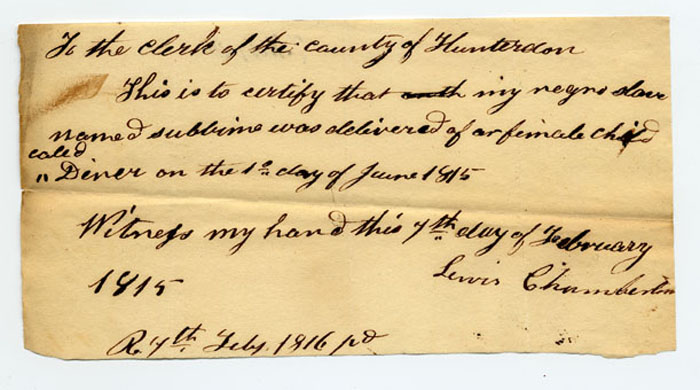 To the clerk of the county of Hunterdon
This is to certify that my negro slave
named subbine was delivered of a female child
caled
" Diner on the 1st day of June 1815
Witness my hand this 7th day of February
1815
Lewis Chamberlin
R. 7th Feby. 1816 pd